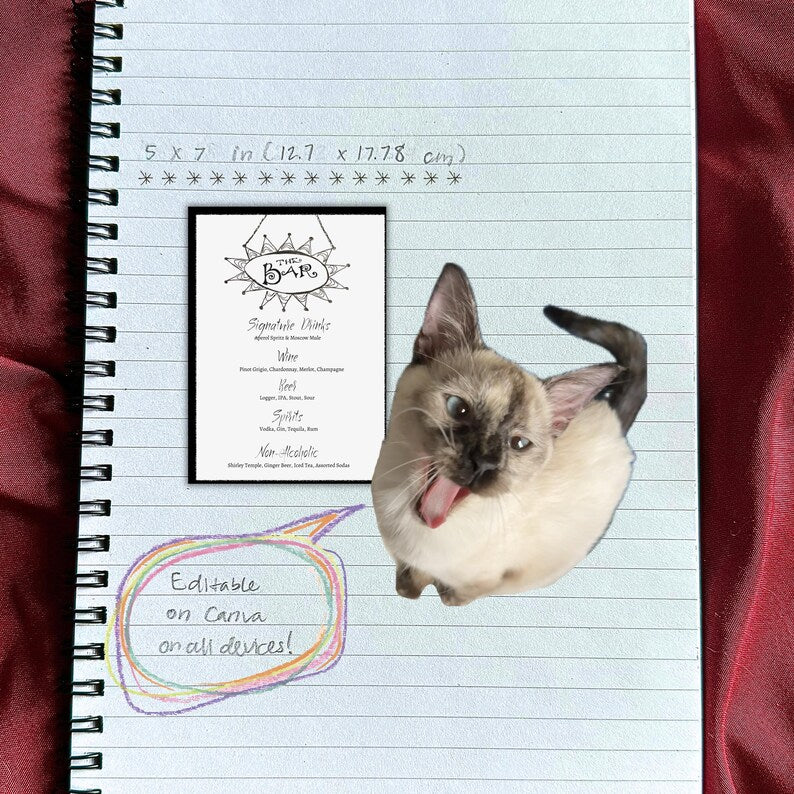 5 x 7 in (12.7 x 17.78 cm)
**************
THE
BAR
Signature Drinks
Aperol Spritz & Moscow Mule
Wine
Pinot Grigio, Chardonnay, Merlot, Champagne
Beer
Logger, IPA, Stout, Sour
Spirits
Vodka, Gin, Tequila, Rum
Non-Alcoholic
Shirley Temple, Ginger Beer, Iced Tea, Assorted Sodas
Editable
on Canva
on all devices!